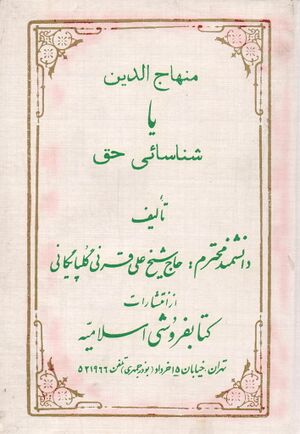 منهاج الدین
یا
شناسائی حق
تألیف
دانشمند محترم: حاج شیخ علی قرنی گلپایگانی
از انتشارات
کتابفروشی اسلامیه
تهران، خیابان ۱۵ خرداد (بوذرجمهری) تلفن ۵۲۱۹۶۶